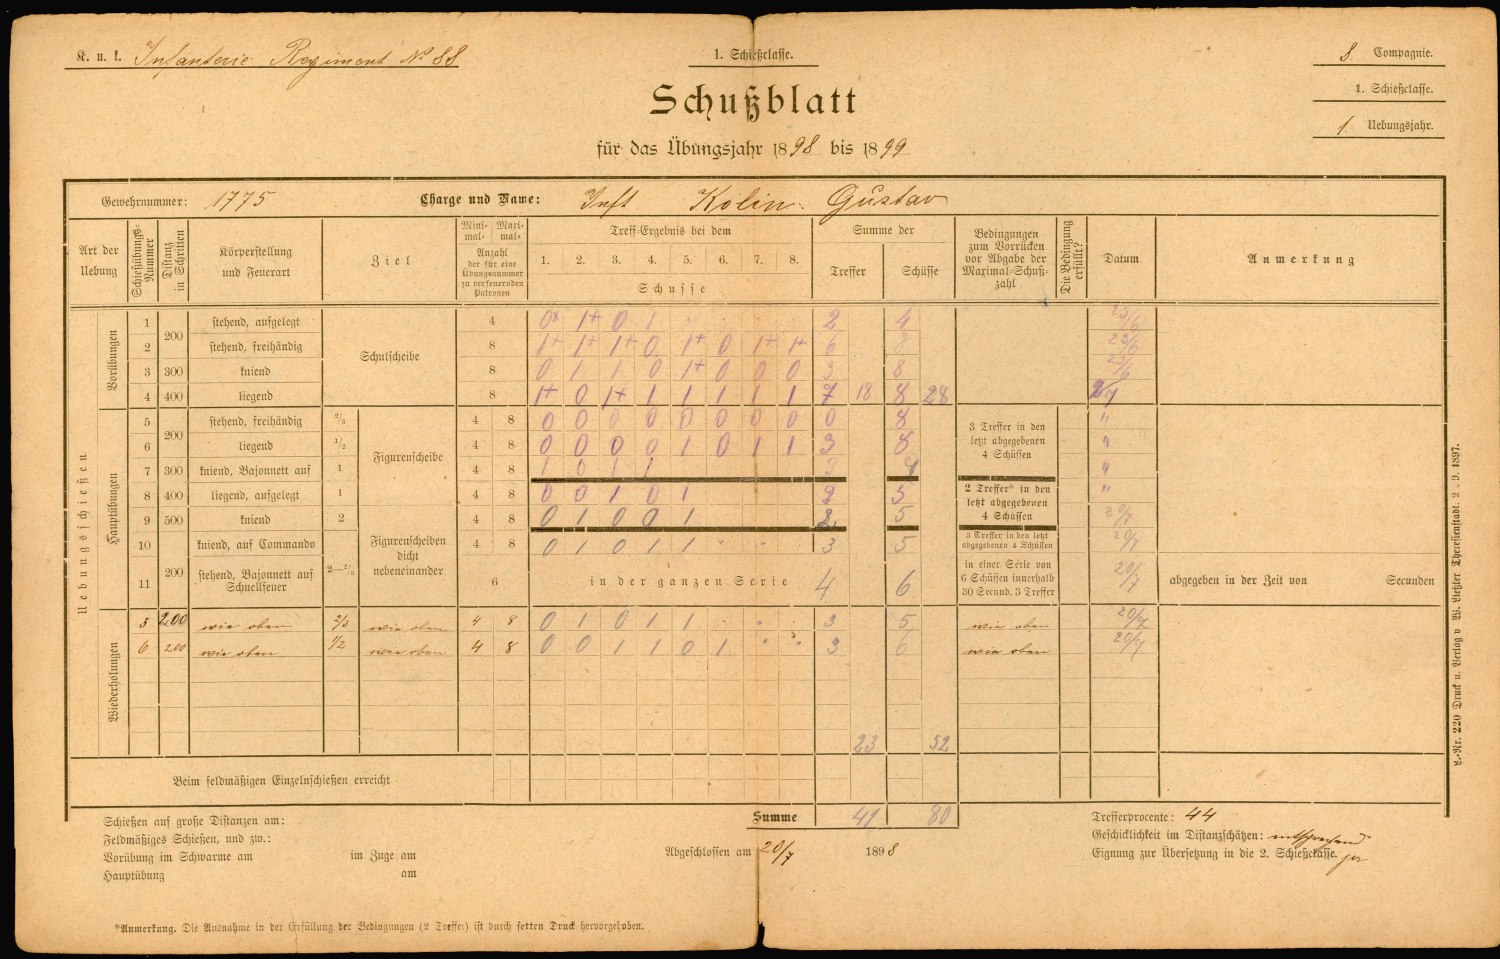 K. u. k. Infanterie Regiment No 88
1. Schießclasse.
8 Compagnie.
1. Schießclasse.
1. Uebungsjahr.
Schußblatt
für das Übungsjahr 1898 bis 1899
Gewehrnummer: 1775 Charge und Name: Inft Kolin Gustav
Art der Uebung
Schießübungs-Nummer
Distanz in Schritten
Körperstellung und Feuerart
Ziel
Mini-mal- Maxi-mal-
Anzahl der für eine Übungsnummer zu verfeuernden Patronen
Treff-Ergebnis bei dem
1. 2. 3. 4. 5. 6. 7. 8.
Schusse
Summe der
Treffer Schüsse
Bedingungen zum Vorrücken vor Abgabe der Maximal-Schuß-zahl
Die Bedingung erfüllt?
Datum
Anmerkung
Uebungsschießen
Vorübungen
1 200 stehend, aufgelegt Schulscheibe 4 0x 1+ 0 1 2 4 23/6
2 stehend, freihändig 8 1+ 1+ 1+ 0 1+ 0 1+ 1+ 6 8 23/6
3 300 kniend 8 0 1 1 0 1+ 0 0 0 3 8 23/6
4 400 liegend 8 1+ 0 1+ 1 1 1 1 1 7 18 8 28
Hauptübungen
5 200 stehend, freihändig 2/3 Figurenscheibe 4 8 0 0 0 0 0 0 0 0 0 8 "
6 liegend 1/2 4 8 0 0 0 0 1 0 1 1 3 8 "
3 Treffer in den letzt abgegebenen 4 Schüssen
7 300 kniend, Bajonnett auf 1 4 8 1 0 1 1 3 4 "
8 400 liegend, aufgelegt 1 4 8 0 0 1 0 1 2 5 "
2 Treffer* in den letzt abgegebenen 4 Schüssen
9 500 kniend 2 4 8 0 1 0 0 1 2 5 20/7
10 200 kniend, auf Commando Figurenscheiben dicht nebeneinander 4 8 0 1 0 1 1 3 5 3 Treffer in den letzt abgegebenen 4 Schüssen 20/7
11 stehend, Bajonnett auf Schnellfeuer 2—2/3 6 in der ganzen Serie 4 6 in einer Serie von 6 Schüssen innerhalb 30 Secund. 3 Treffer 20/7 abgegeben in der Zeit von Secunden
Wiederholungen
5 200 wie oben 2/3 wie oben 4 8 0 1 0 1 1 3 5 wie oben 20/7
6 200 wie oben 1/2 wie oben 4 8 0 0 1 1 0 1 3 6 wie oben 20/7
23 52
Beim feldmäßigen Einzelnschießen erreicht
Summe 41 80
Schießen auf große Distanzen am:
Feldmäßiges Schießen, und zw.:
Vorübung im Schwarme am im Zuge am
Hauptübung am
Abgeschlossen am 20/7 1898
Trefferprocente: 44
Geschicklichkeit im Distanzschätzen: entsprechend
Eignung zur Übersetzung in die 2. Schießclasse ja
*Anmerkung. Die Ausnahme in der Erfüllung der Bedingungen (2 Treffer) ist durch fetten Druck hervorgehoben.
L.-Nr. 220 Druck u. Verlag v. W. Ließler Theresienstadt. 2. 9. 1897.